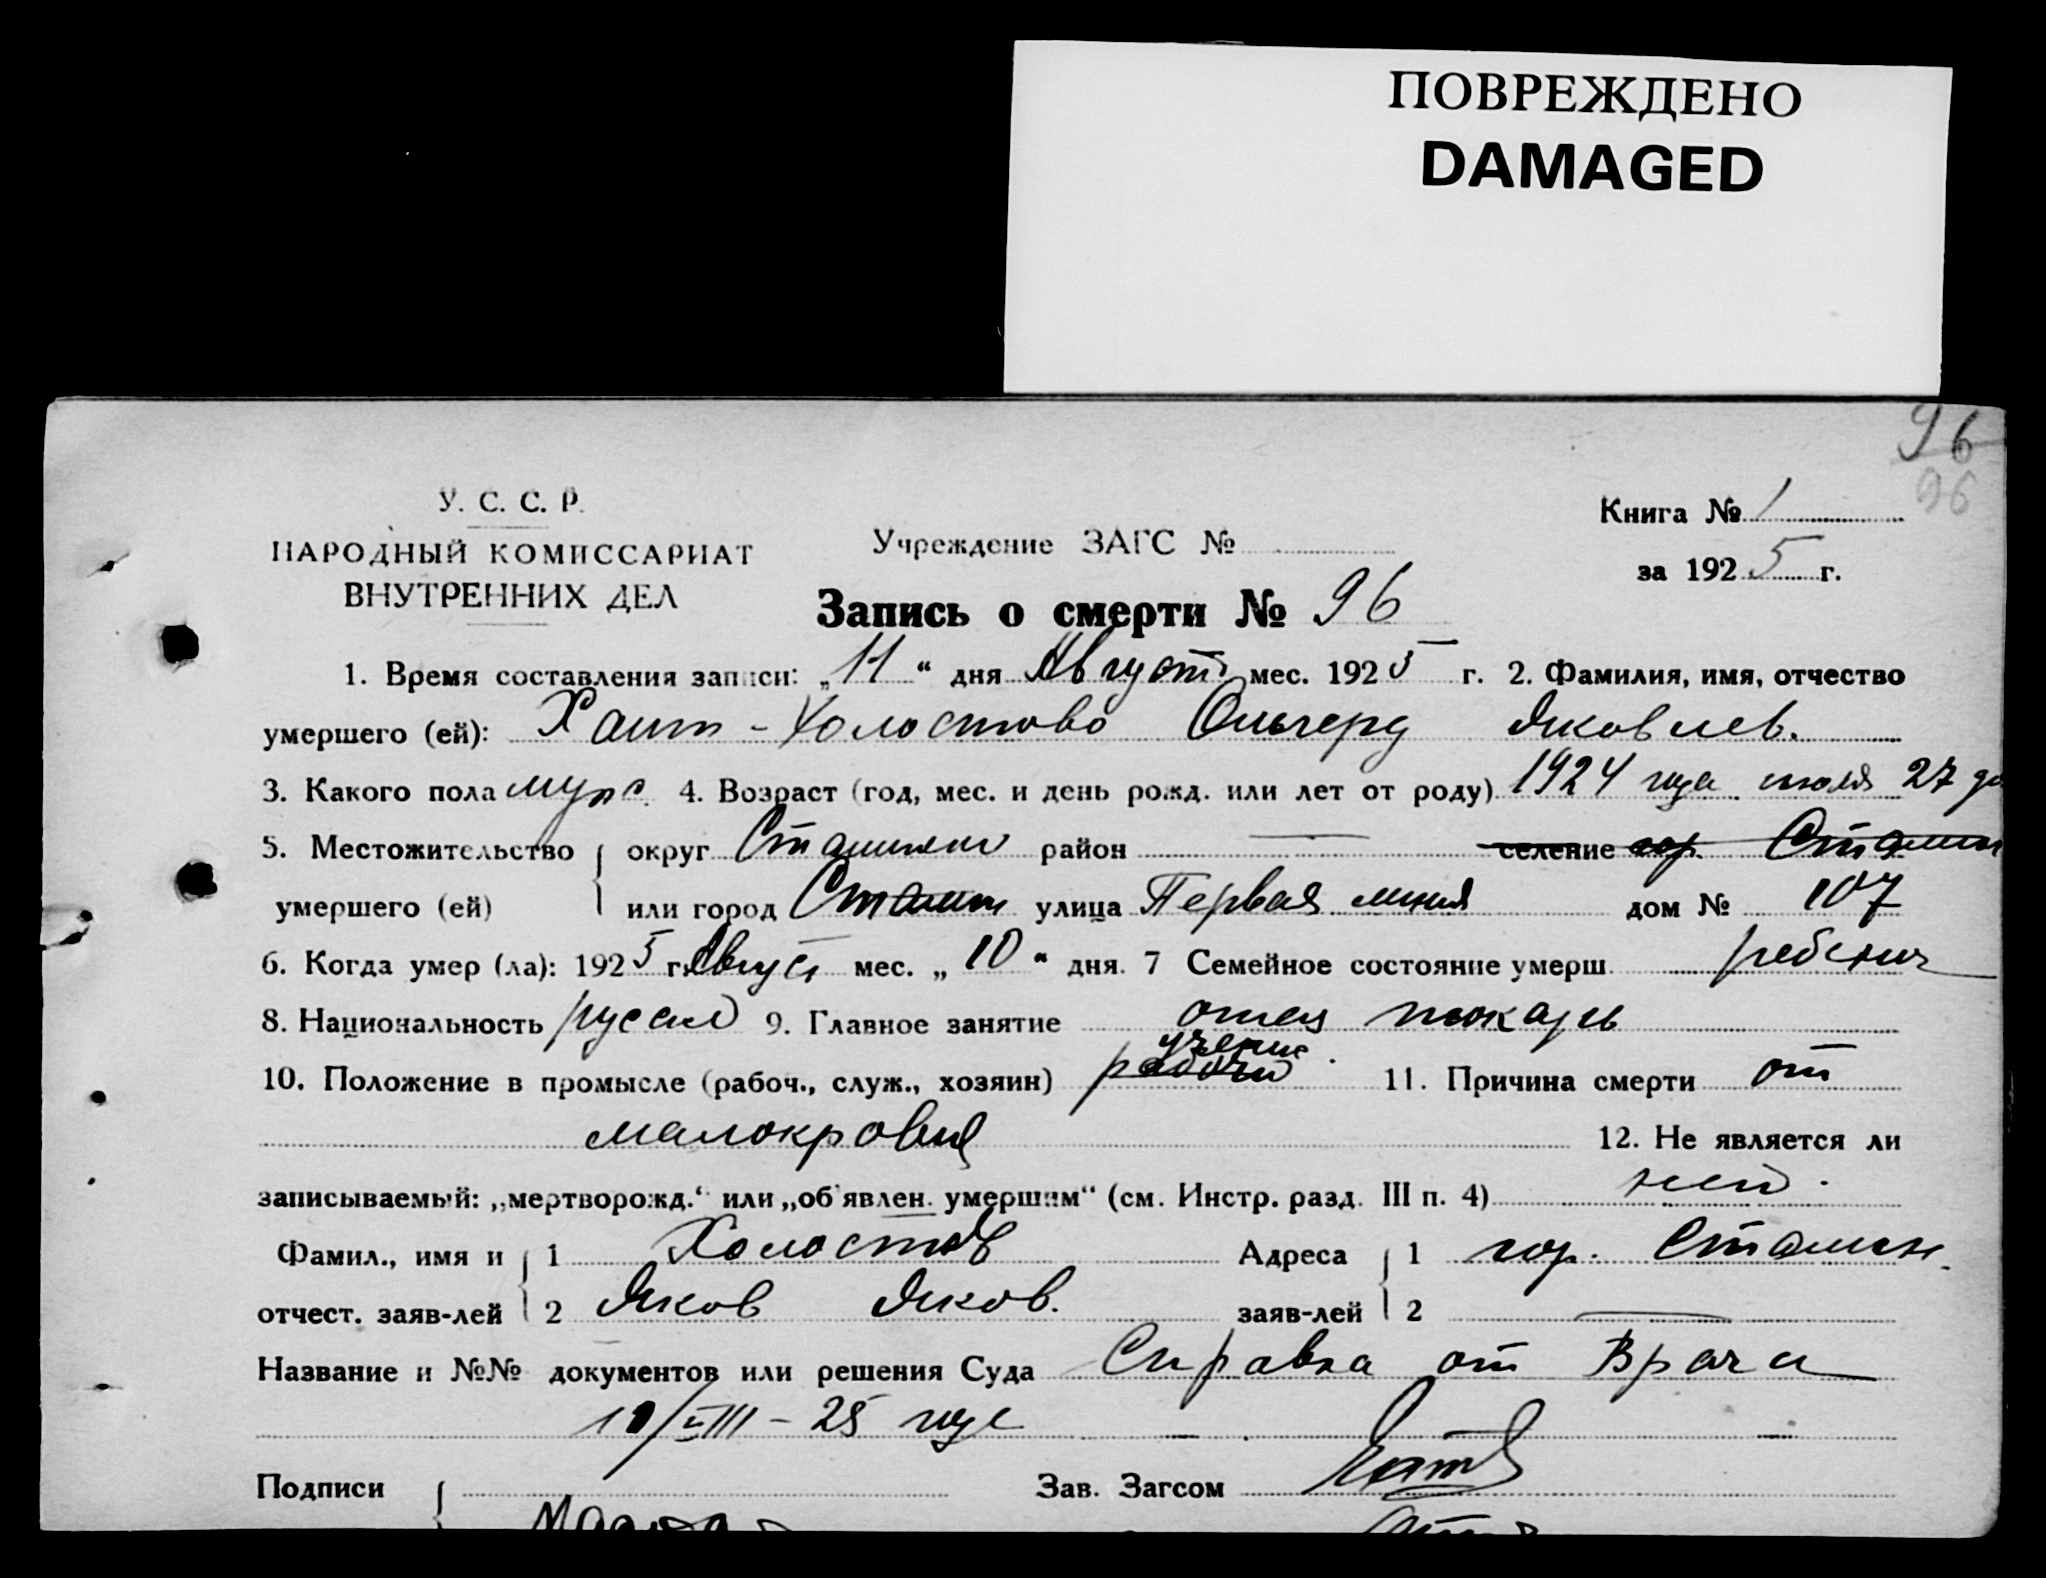 ПОВРЕЖДЕНО
DAMAGED
96
96
У. С. С. Р.
НАРОДНЫЙ КОМИССАРИАТ
ВНУТРЕННИХ ДЕЛ
Учреждение ЗАГС №
Книга № 1
за 1925 г.
Запись о смерти № 96
1. Время составления записи: „11“ дня Август мес. 1925 г. 2. Фамилия, имя, отчество
умершего (ей): Хаит-Холостово Ольгерд Яковлев.
3. Какого пола муж. 4. Возраст (год, мес. и день рожд. или лет от роду) 1924 года июля 27 дн
5. Местожительство округ Сталинско район — селение гор. Сталин
умершего (ей) или город Сталин улица Первая линия дом № 107
6. Когда умер (ла): 1925 г. Август мес. „10“ дня. 7 Семейное состояние умерш. ребенок
8. Национальность русско 9. Главное занятие отец токарь
10. Положение в промысле (рабоч., служ., хозяин) рабочий 11. Причина смерти от
малокровия 12. Не является ли
записываемый: „мертворожд.“ или „об'явлен. умершим“ (см. Инстр. разд. III п. 4)
Фамил., имя и 1 Холостов Адреса 1 гор. Сталин.
отчест. заяв-лей 2 Яков Яков. заяв-лей 2 —
Название и №№ документов или решения Суда Справка от Врача
10/VIII – 25 года
Подписи Зав. Загсом